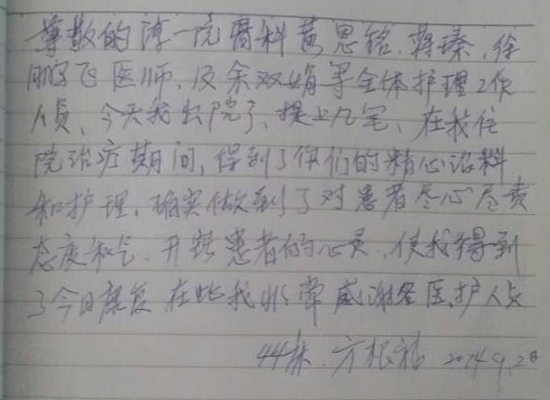 尊敬的漳一院骨科黄思铭、蒋臻、徐
鹏飞医师,及余双娟等全体护理工作
人员,今天我出院了,提上几笔,在我住
院治疗期间,得到了你们的精心治料
和护理,确实做到了对患者尽心尽责
态度和气、开窍患者的心灵,使我得到
了今日康复 在此我非常感谢各医、护人员
44床、方根福 2014.9.2日